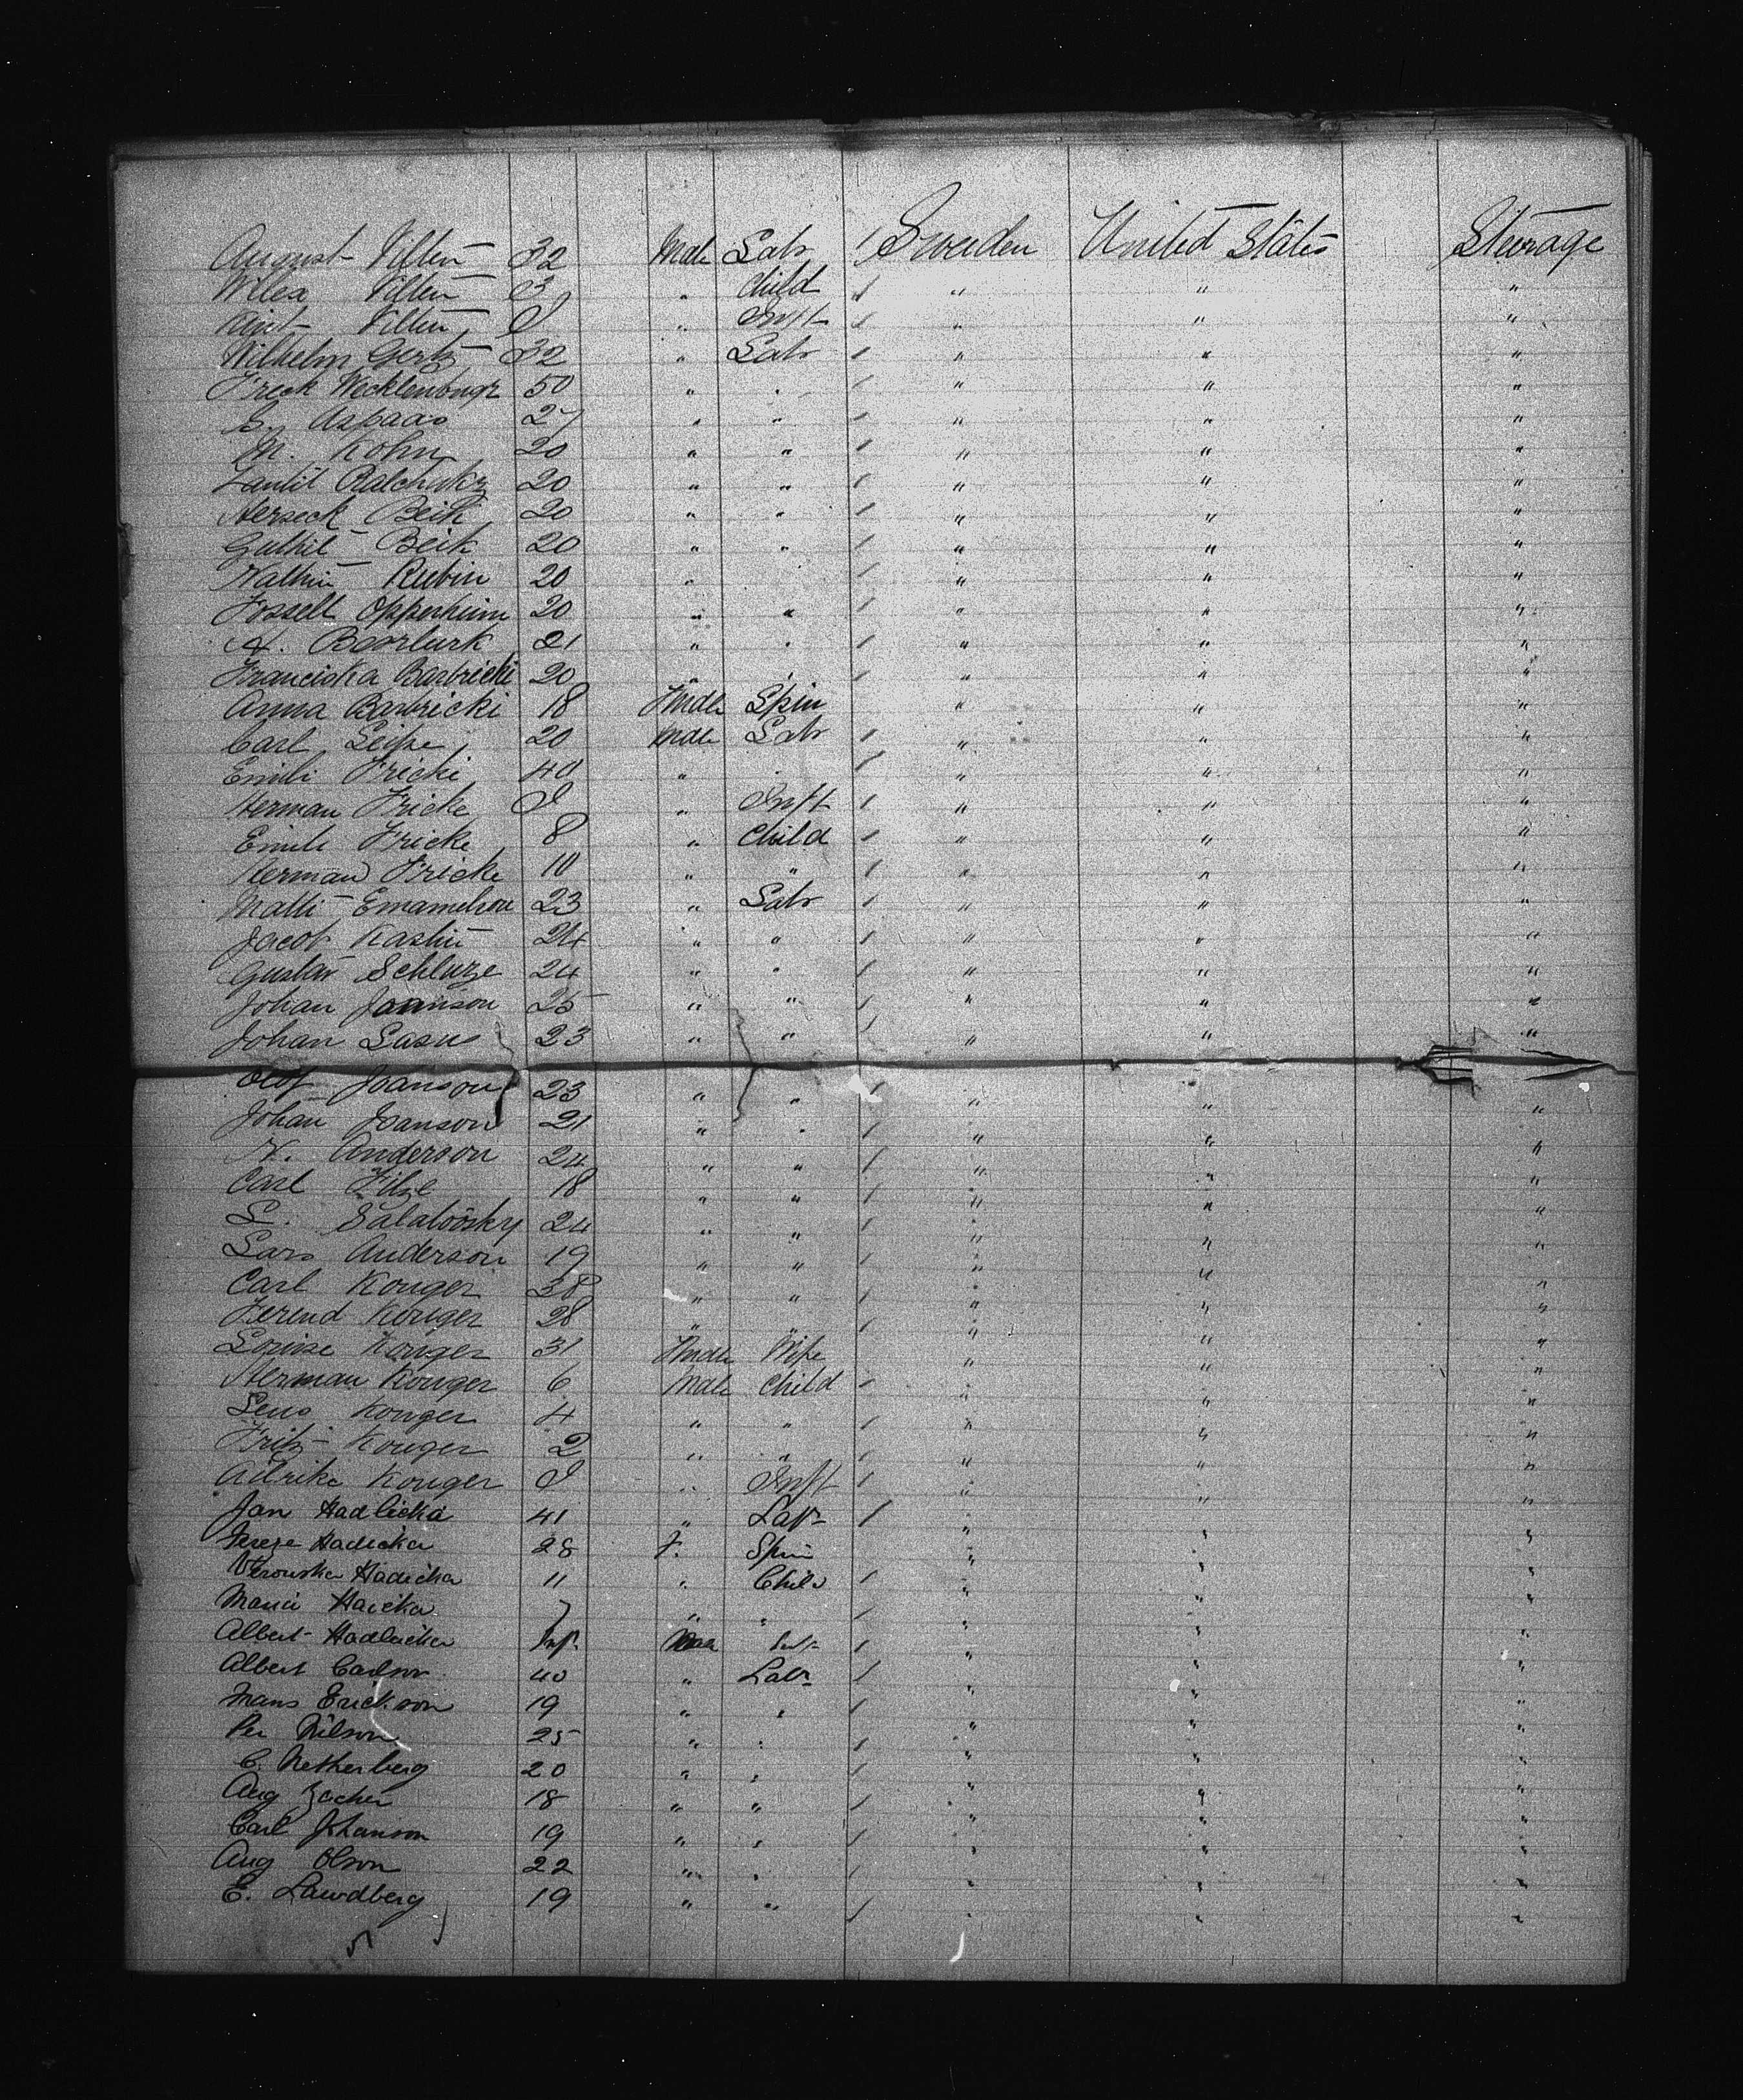 August Vilten 32 Male Labr / Sweden United States Steerage
Vilten 3 " Child / " " "
Vilten " Inft / " " "
Wilhelm Gertz 32 " Labr / " " "
Fredk Mecklenburgr 50 " " / " " "
Aspaas 27 " " / " " "
M. Kohn 20 " " / " " "
20 " " / " " "
Herseck Beik 20 " " / " " "
Guthil Beik 20 " " / " " "
Nathin Rubin 20 " / " " "
Jossell Oppenheim 20 " " / " " "
21 " " / " " "
Franciska Barbricki 20 " " / " " "
Anna Barbricki 18 Fmale Spin " " "
Carl Leipe 20 Male Labr / " " "
Emili Fricki 40 " " / " " "
Herman Fricke " Inft / " " "
Emili Fricke 8 " Child / " " "
Herman Fricke 10 " " / " " "
Matti 23 " Labr / " " "
Jacob Kastin 24 " " / " " "
Gustav Schluze 24 " " / " " "
Johan Joanison 25 " " / " " "
Johan Lasus 23 " " / " " "
Olof Joanson 23 " " / " " "
Johan Joanson 21 " " / " " "
N. Anderson 24 " " / " " "
Carl Filze 18 " " / " " "
S. 24 " " / " " "
Lars Anderson 19 " " / " " "
Carl Kouger 38 " " / " " "
Ferend Kouger 28 " " / " " "
Louise Kouger 31 Fmale Wife " " "
Herman Kouger 6 Male Child / " " "
Leno Kouger 4 " " / " " "
Fritz Kouger 2 " " / " " "
Kouger " Inft / " " "
Jan Hadlicka 41 " Labr / " " "
Hadicka 28 F. Spin " " "
Hadicka 11 " Child / " " "
Maria Haicka 7 " " / " " "
Albert Hadlicka Inf. Male Inft / " " "
Albert Carlson 40 " Labr / " " "
Mans Erickson 19 " " / " " "
Per Nilson 25 " " / " " "
C. Netherberg 20 " " / " " "
Aug Zacher 18 " " / " " "
Carl Johanson 19 " " / " " "
Aug Olson 22 " " / " " "
E. Landberg 19 " " / " " "